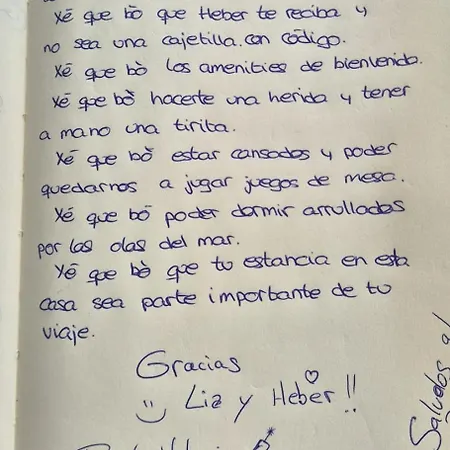 Xē que bò que Heber te reciba y
no sea una cajetilla con código.
Xē que bò los amenities de bienvenida.
Xē que bò hacerte una herida y tener
a mano una tirita.
Xē que bò estar cansados y poder
quedarnos a jugar juegos de mesa.
Xē que bò poder dormir arrullados
por las olas del mar.
Xē que bò que tu estancia en esta
casa sea parte importante de tu
viaje.
Gracias
Liz y Heber!!
Saludos al